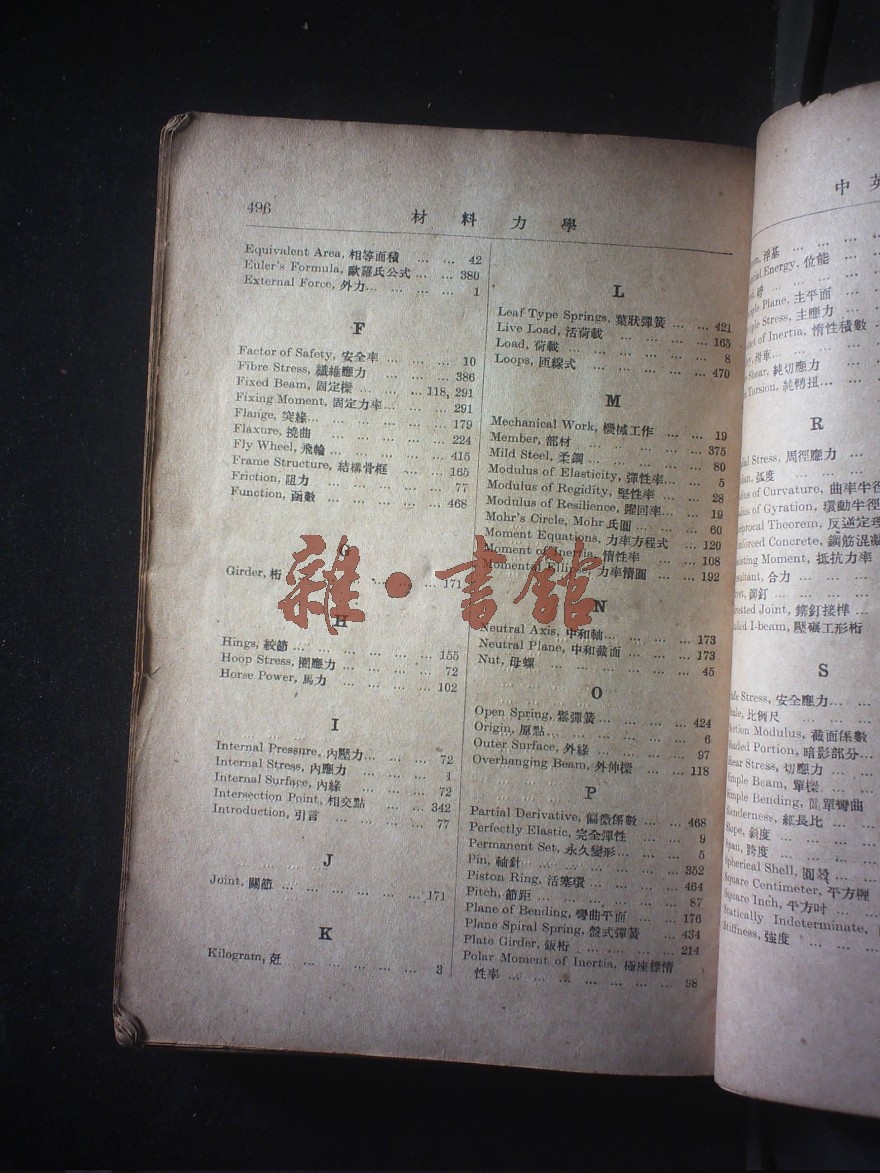 496
材料力學
Equivalent Area, 相等面積 ... ... 42
Euler's Formula, 歐羅氏公式 ... ... 380
External Force, 外力... ... ... ... 1
F
Factor of Safety, 安全率 ... ... ... 10
Fibre Stress, 纖維應力 ... ... ... 386
Fixed Beam, 固定樑 ... ... ...118, 291
Fixing Moment, 固定力率... ... ... 291
Flange, 突緣... ... ... ... ... 179
Flaxure, 撓曲 ... ... ... ... 224
Fly Wheel, 飛輪 ... ... ... ... 415
Frame Structure, 結構骨框 ... ... 165
Friction, 阻力 ... ... ... ... 77
Function, 函數 ... ... ... ... 468
G
Girder, 桁 ... ... ... ... 171
H
Hings, 鉸節 ... ... ... ... ... 155
Hoop Stress, 圈應力 ... ... ... ... 72
Horse Power, 馬力 ... ... ... 102
I
Internal Pressure, 內壓力... ... ... 72
Internal Stress, 內應力 ... ... ... 1
Internal Surface, 內緣 ... ... ... 72
Intersection Point, 相交點 ... ... 342
Introduction, 引言 ... ... ... ... 77
J
Joint, 關節 ... ... ... ... ... 171
K
Kilogram, ... ... ... ... ... 3
L
Leaf Type Springs, 葉狀彈簧 ... ... 421
Live Load, 活荷載 ... ... ... ... 165
Load, 荷載 ... ... ... ... ... 8
Loops, 匝線式 ... ... ... ... 470
M
Mechanical Work, 機械工作 ... ... 19
Member, 部材 ... ... ... ... 375
Mild Steel, 柔鋼... ... ... ... ... 80
Modulus of Elasticity, 彈性率... ... 5
Modulus of Regidity, 堅性率 ... ... 28
Modulus of Resilience, 躍回率... ... 19
Mohr's Circle, Mohr 氏圓 ... ... ... 60
Moment Equations, 力率方程式 ... 120
Moment of Inertia, 惰性率 ... ... 108
Momental Ellipse, 力率惰圓 ... ... 192
雜·書館
N
Neutral Axis, 中和軸... ... ... ... 173
Neutral Plane, 中和截面 ... ... ... 173
Nut, 母螺 ... ... ... ... ... 45
O
Open Spring, 鬆彈簧... ... ... ... 424
Origin, 原點... ... ... ... ... 6
Outer Surface, 外緣 ... ... ... ... 97
Overhanging Beam, 外伸樑 ... ... 118
P
Partial Derivative, 偏微係數 ... ... 468
Perfectly Elastic, 完全彈性 ... ... 9
Permanent Set, 永久變形... ... ... 5
Pin, 軸針... ... ... ... ... ... 352
Piston Ring, 活塞環 ... ... ... ... 464
Pitch, 節距 ... ... ... ... ... 87
Plane of Bending, 彎曲平面 ... ... 176
Plane Spiral Spring, 盤式彈簧 ... 434
Plate Girder, 鈑桁 ... ... ... ... 214
Polar Moment of Inertia, 極座標惰
性率 ... ... ... ... ... ... 98
中英
Energy, 位能 ...
Plane, 主平面 ...
Stress, 主應力 ...
of Inertia, 惰性積數
Shear, 純切應力 ...
Torsion, 純轉扭... ...
R
Stress, 周徑應力 ...
弧度 ... ... ...
of Curvature, 曲率半徑
of Gyration, 環動半徑
Theorem, 反逆定理
Concrete, 鋼筋混凝
Moment, 抵抗力率
合力 ... ... ...
鉚釘 ... ... ...
Joint, 鉚釘接榫 ...
I-beam, 壓碾工形桁
S
Stress, 安全應力... ...
比例尺 ... ...
Modulus, 截面係數
Portion, 暗影部分...
Stress, 切應力 ...
Beam, 單樑 ...
Bending, 簡單彎曲
細長比 ...
斜度 ... ...
跨度 ... ...
Spherical Shell, 圓殼 ...
Square Centimeter, 平方糎
Square Inch, 平方吋 ...
Statically Indeterminate,
Stiffness, 強度 ... ...